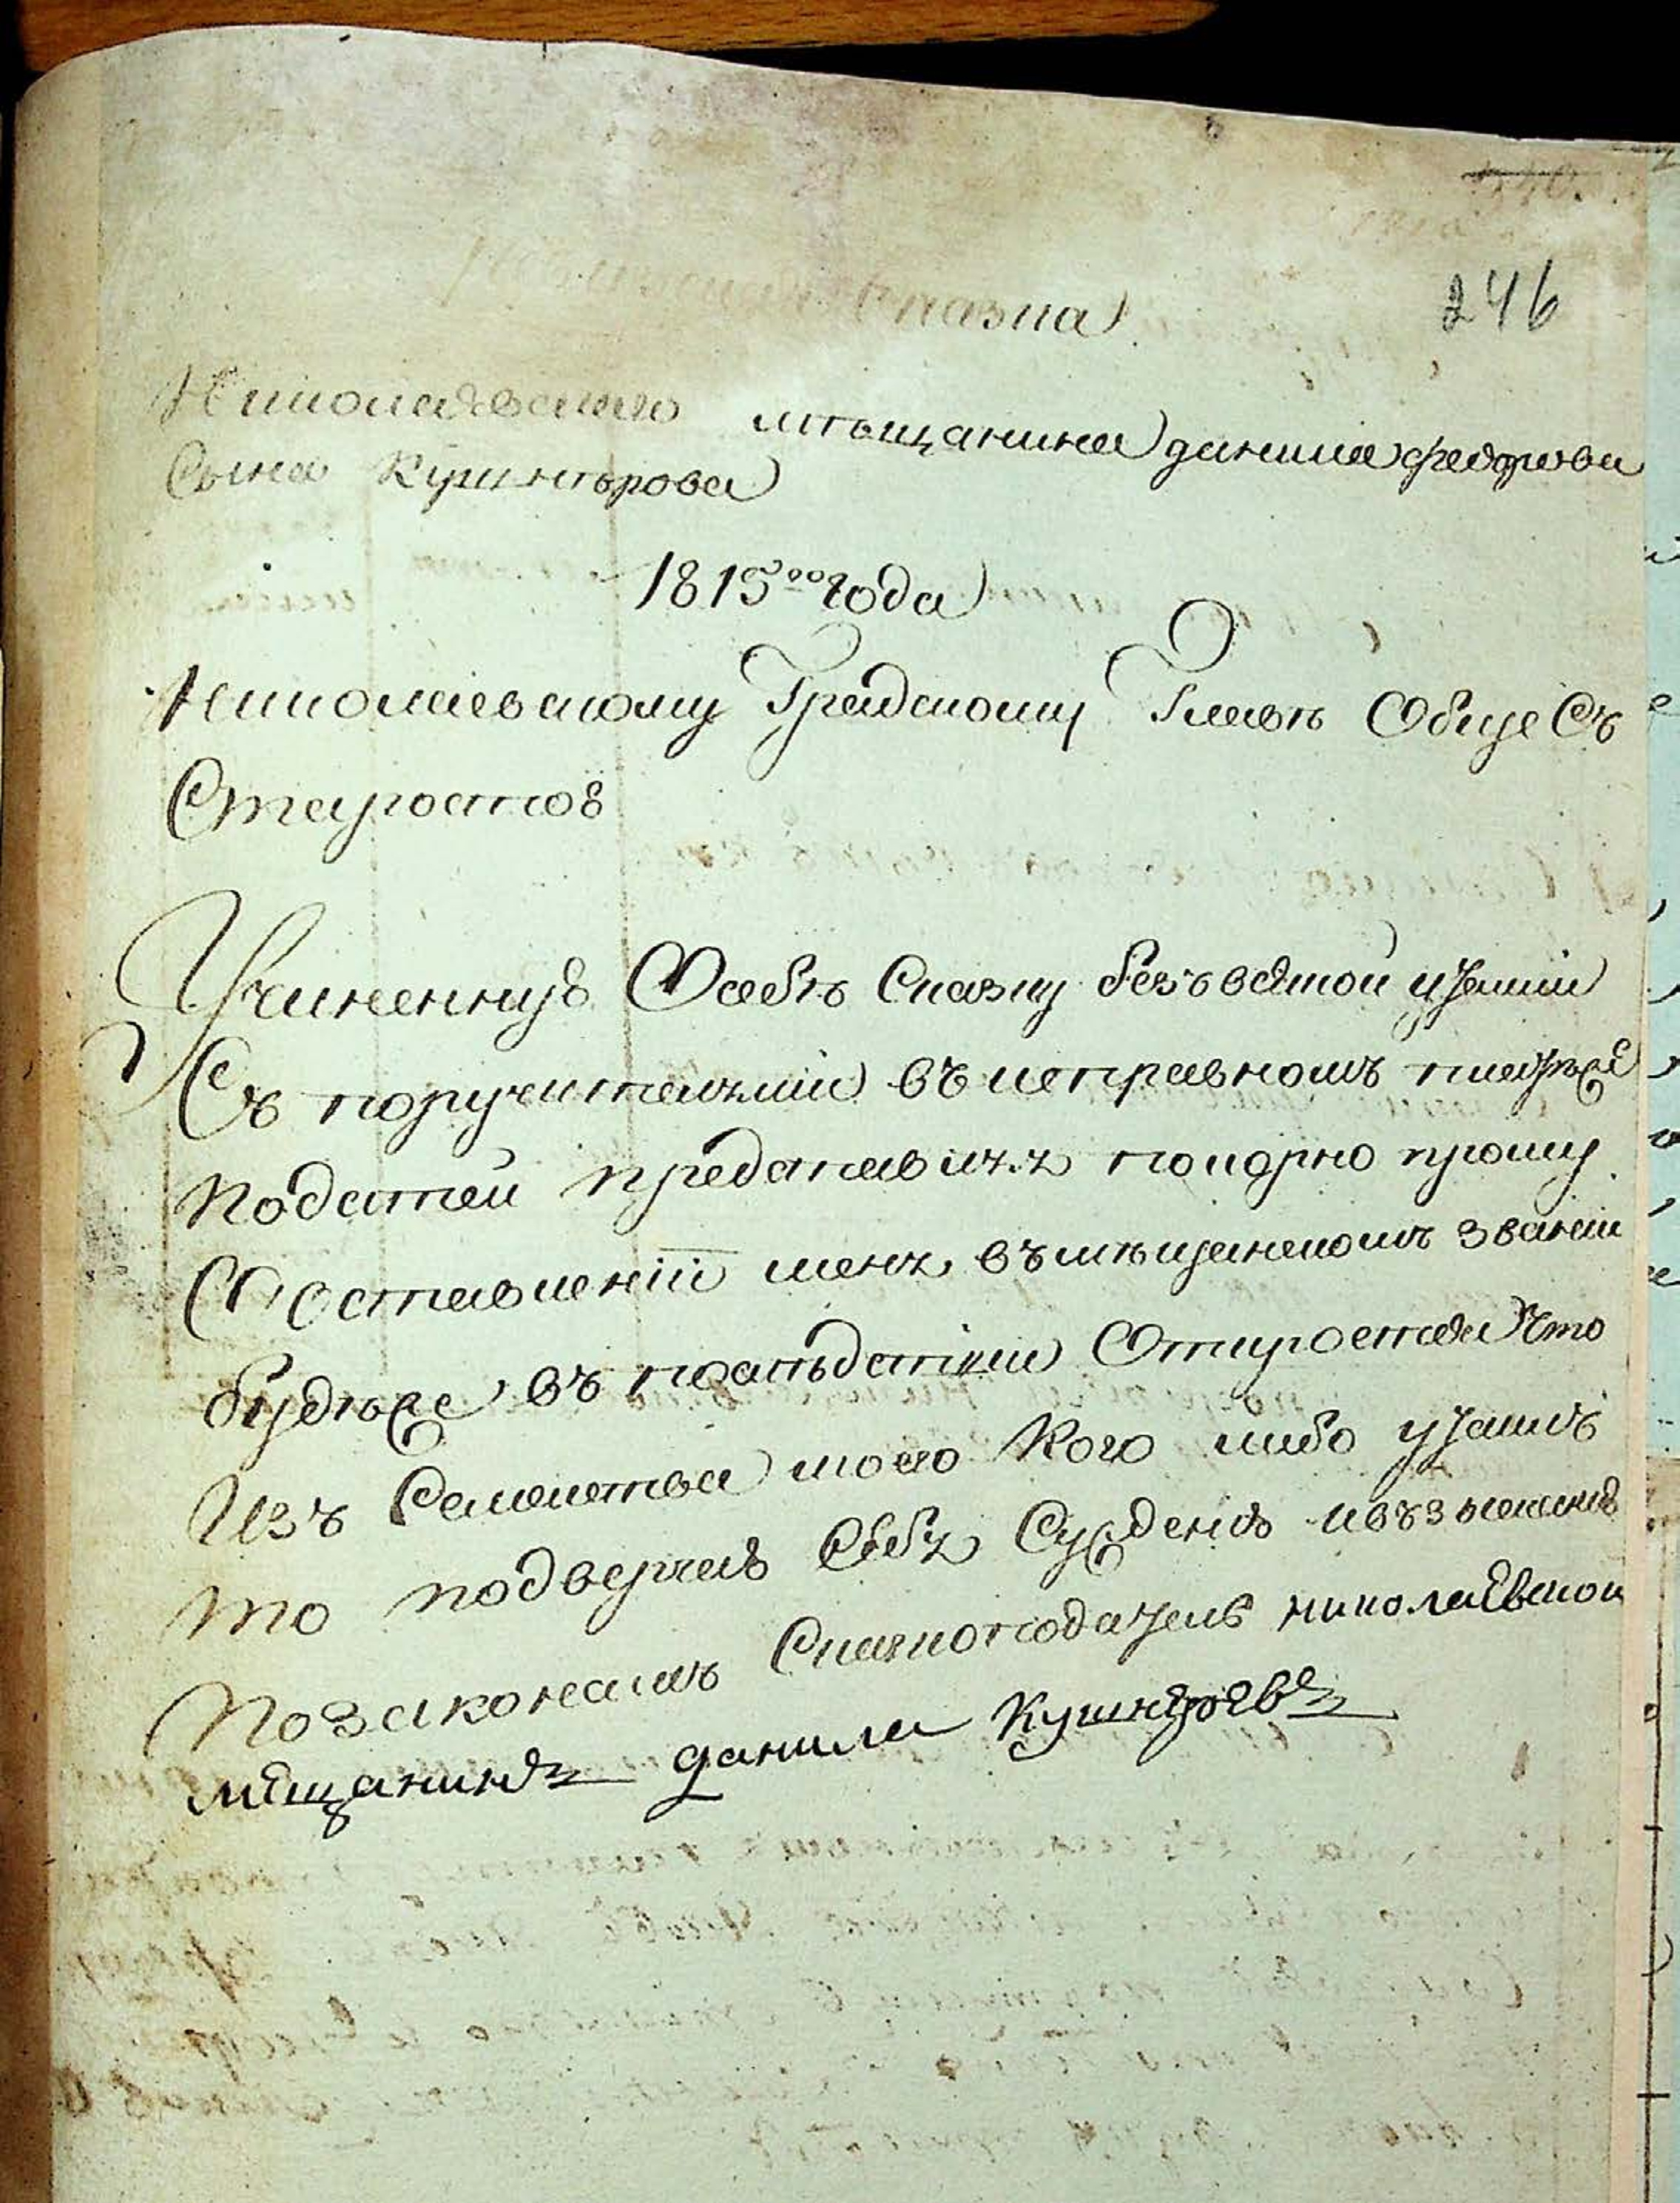 Сказка
246
Николаевского мѣщанина данила федорова
Сына Кушнѣрова
1815го года
Николаевскому Градскому Главѣ Обще Съ
Старостою
Учиненную Осебѣ Сказку безъ всякой утайки
Съ поручительми въ исправномъ платѣже
Податей представляя покорно прошу
Обоставленіи меня въ мѣщанскомъ званіи
будеже въ последствіи Откроется Что
Изъ Семейства моего Кого либо утаилъ
то подвергаю Себя Сужденію ивъзысканію
По законамъ Сказкоподатель николаевской
мещанинъ данила Кушнеровъ